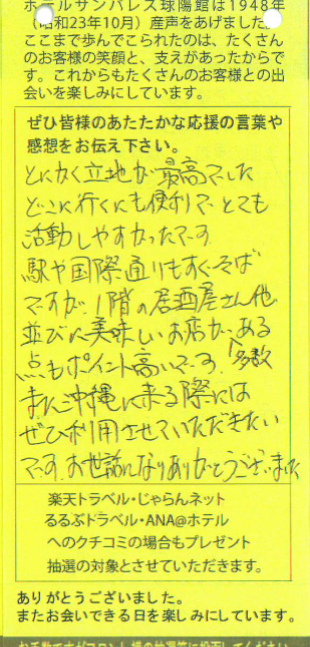 ホテルサンパレス球陽館は1948年
（昭和23年10月）産声をあげました。
ここまで歩んでこられたのは、たくさん
のお客様の笑顔と、支えがあったからで
す。これからもたくさんのお客様との出
会いを楽しみにしています。
ぜひ皆様のあたたかな応援の言葉や
感想をお伝え下さい。
とにかく立地が最高でした
どこに行くにも便利でとても
活動しやすかったです
駅や国際通りもすぐそば
ですが、1階の居酒屋さん他
並びに美味しいお店が、ある
点もポイント高いです。多数
また沖縄に来る際には
ぜひ利用させていただきたい
です。お世話になりありがとうございました
楽天トラベル・じゃらんネット
るるぶトラベル・ANA@ホテル
へのクチコミの場合もプレゼント
抽選の対象とさせていただきます。
ありがとうございました。
またお会いできる日を楽しみにしています。